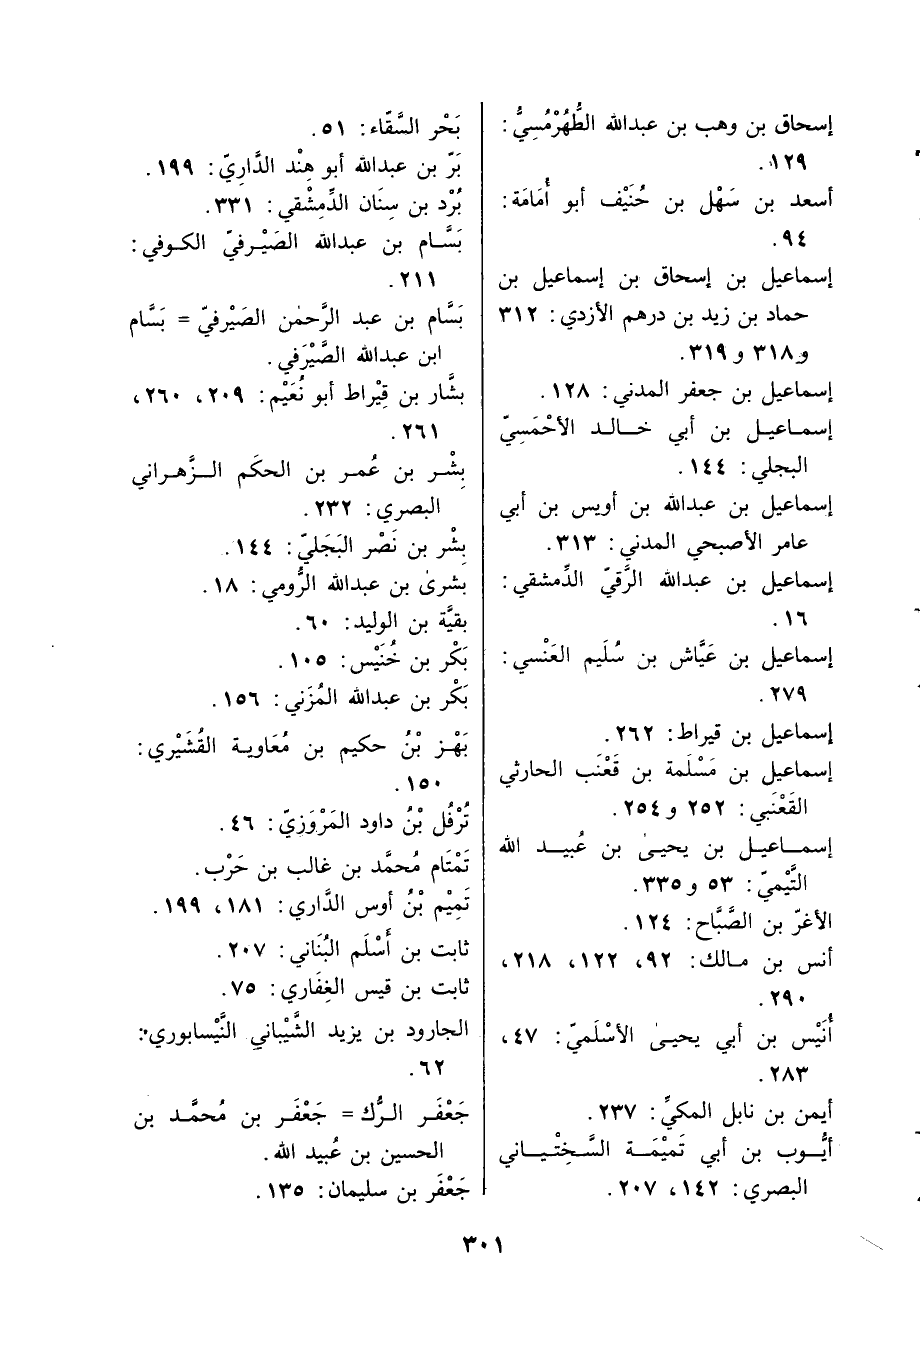 إسحاق بن وهب بن عبدالله الطُّهُرْمُسِيُّ:
١٢٩.
أسعد بن سَهْل بن حُنَيْف أبو أُمَامَة:
٩٤.
إسماعيل بن إسحاق بن إسماعيل بن
حماد بن زيد بن درهم الأزدي: ٣١٢
و٣١٨ و٣١٩.
إسماعيل بن جعفر المدني: ١٢٨.
إسماعيل بن أبي خالد الأحْمَسِيّ
البجلي: ١٤٤.
إسماعيل بن عبدالله بن أويس بن أبي
عامر الأصبحي المدني: ٣١٣.
إسماعيل بن عبدالله الرَّقيّ الدِّمشقي:
١٦.
إسماعيل بن عَيَّاش بن سُلَيم العَنْسي:
٢٧٩.
إسماعيل بن قيراط: ٢٦٢.
إسماعيل بن مَسْلَمة بن قَعْنَب الحارثي
القَعْنَبي: ٢٥٢ و٢٥٤.
إسماعيل بن يحيىٰ بن عُبيد الله
التَّيْميّ: ٥٣ و٣٣٥.
الأغرّ بن الصَّبَّاح: ١٢٤.
أنس بن مالك: ٩٢، ١٢٢، ٢١٨،
٢٩٠.
أُنَيْس بن أبي يحيىٰ الأسْلَميّ: ٤٧،
٢٨٣.
أيمن بن نابل المكيِّ: ٢٣٧.
أيُّوب بن أبي تَمِيْمَة السَّخِتْياني
البصري: ١٤٢، ٢٠٧.
بَحْر السَّقَّاء: ٥١.
بَرّ بن عبدالله أبو هِنْد الدَّاريّ: ١٩٩.
بُرْد بن سِنَان الدِّمِشْقي: ٣٣١.
بَسَّام بن عبدالله الصَيْرفيّ الكوفي:
٢١١.
بَسَّام بن عبد الرَّحمٰن الصَيْرفيّ = بَسَّام
ابن عبدالله الصَّيْرَفي.
بشَّار بن قِيْراط أبو نُعَيْم: ٢٠٩، ٢٦٠،
٢٦١.
بِشْر بن عُمر بن الحكَم الزَّهراني
البصري: ٢٣٢.
بِشْر بن نَصْر البَجَليّ: ١٤٤.
بشرىٰ بن عبدالله الرُّومي: ١٨.
بقيَّة بن الوليد: ٦٠.
بَكْر بن خُنَيْس: ١٠٥.
بَكْر بن عبدالله المُزَني: ١٥٦.
بَهْز بْنُ حكيم بن مُعَاوية القُشَيْري:
١٥٠.
تُرْفُل بْنُ داود المَرْوَزيّ: ٤٦.
تَمْتَام مُحمَّد بن غالب بن حَرْب.
تَمِيْم بْنُ أوس الدَّاري: ١٨١، ١٩٩.
ثابت بن أَسْلَم البُنَاني: ٢٠٧.
ثابت بن قيس الغِفَاري: ٧٥.
الجارود بن يزيد الشَّيْباني النَّيْسابوري:
٦٢.
جَعْفَر الرُّك = جَعْفَر بن مُحمَّد بن
الحسين بن عُبيد الله.
جَعْفَر بن سليمان: ١٣٥.
٣٠١